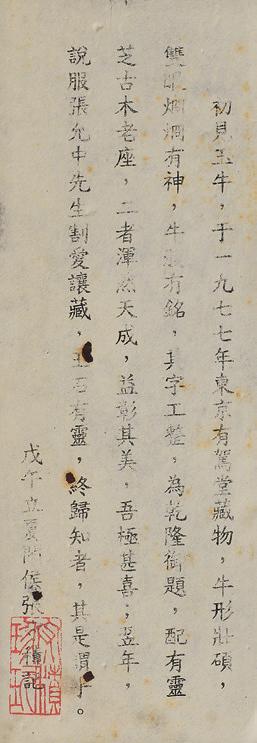 初見玉牛，于一九七七年東京有鄰堂藏物，牛形壯碩，
雙眼烱烱有神，牛腹有銘，其字工整，為乾隆御題，配有靈
芝古木老座，二者渾然天成，益彰其美，吾極甚喜；翌年，
說服張允中先生割愛讓藏，玉石有靈，終歸知者，其是謂乎。
戊午立夏陽侯張 積記